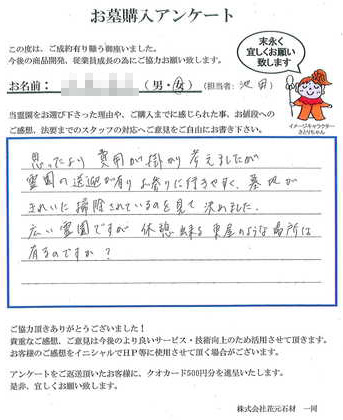 お墓購入アンケート
この度は、ご成約有り難う御座いました。
今後の商品開発、従業員成長の為にご協力お願い致します。
末永く
宜しくお願い
致します
お名前： (男・女) (担当者: 池田)
当霊園をお選び下さった理由や、ご購入までに感じられた事、お値段への
ご感想、法要までのスタッフの対応へご意見をご自由にお書き下さい。
イメージキャラクター
さとりちゃん
思ったより費用が掛かり考えましたが
霊園の送迎が有りお参りに行きやすく、墓地が
きれいに掃除されているのを見て決めました。
広い霊園ですが休憩出来る東屋のような場所は
有るのですか?
ご協力頂きありがとうございました！
貴重なご感想、ご意見は今後のより良いサービス・技術向上のため活用させて頂きます。
お客様のご感想をイニシャルでHP等に使用させて頂く場合がございます。
アンケートをご返送頂いたお客様に、クオカード500円分を進呈いたします。
是非、宜しくお願い致します。
株式会社花元石材 一同